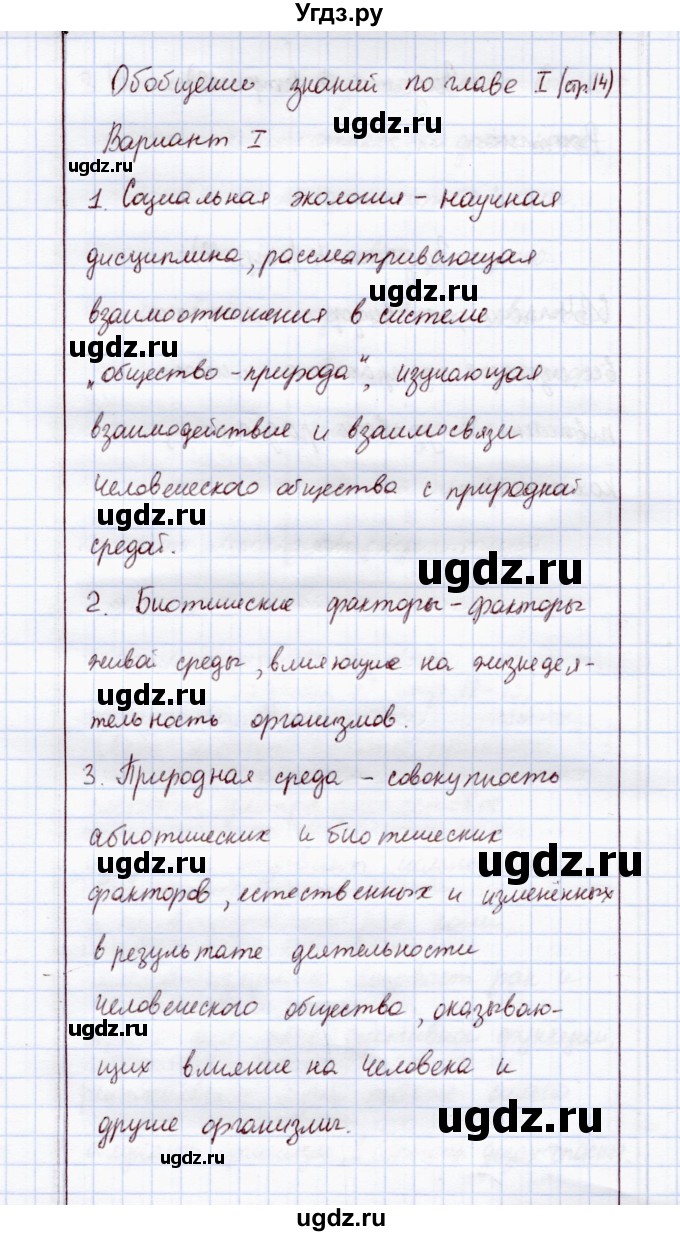 Угдз.ру
Обобщение знаний по главе I (стр.14)
ugdz.ru
Вариант I
ugdz.ru
1. Социальная экология - научная
дисциплина, рассматривающая
ugdz.ru
взаимоотношения в системе
ugdz.ru
„общество - природа", изучающая
взаимодействие и взаимосвязи
человеческого общества с природной
ugdz.ru
средой.
ugdz.ru
2. Биотические факторы - факторы
живой среды, влияющие на жизнедея-
ugdz.ru
тельность организмов.
3. Природная среда - совокупность
абиотических и биотических
ugdz.ru
ugdz.ru
факторов, естественных и изменённых
в результате деятельности
человеческого общества, оказываю-
ugdz.ru
щих влияние на человека и
другие организмы.
ugdz.ru
ugdz.ru
ugdz.ru